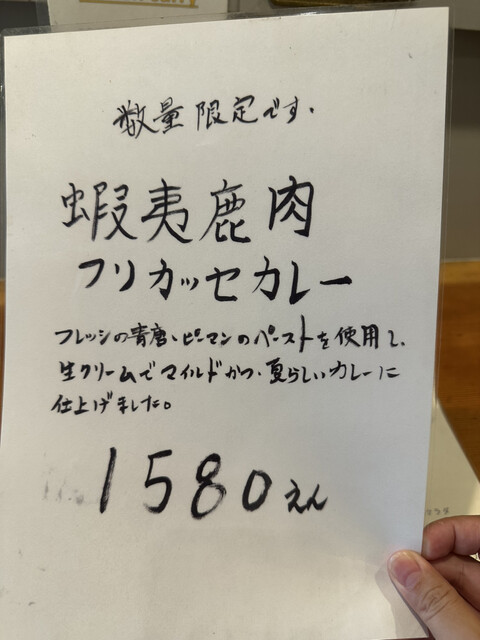 数量限定です.
蝦夷鹿肉
フリカッセカレー
フレッシの青唐、ピーマンのペーストを使用し、
生クリームでマイルドかつ、夏らしいカレーに
仕上げました。
1580えん